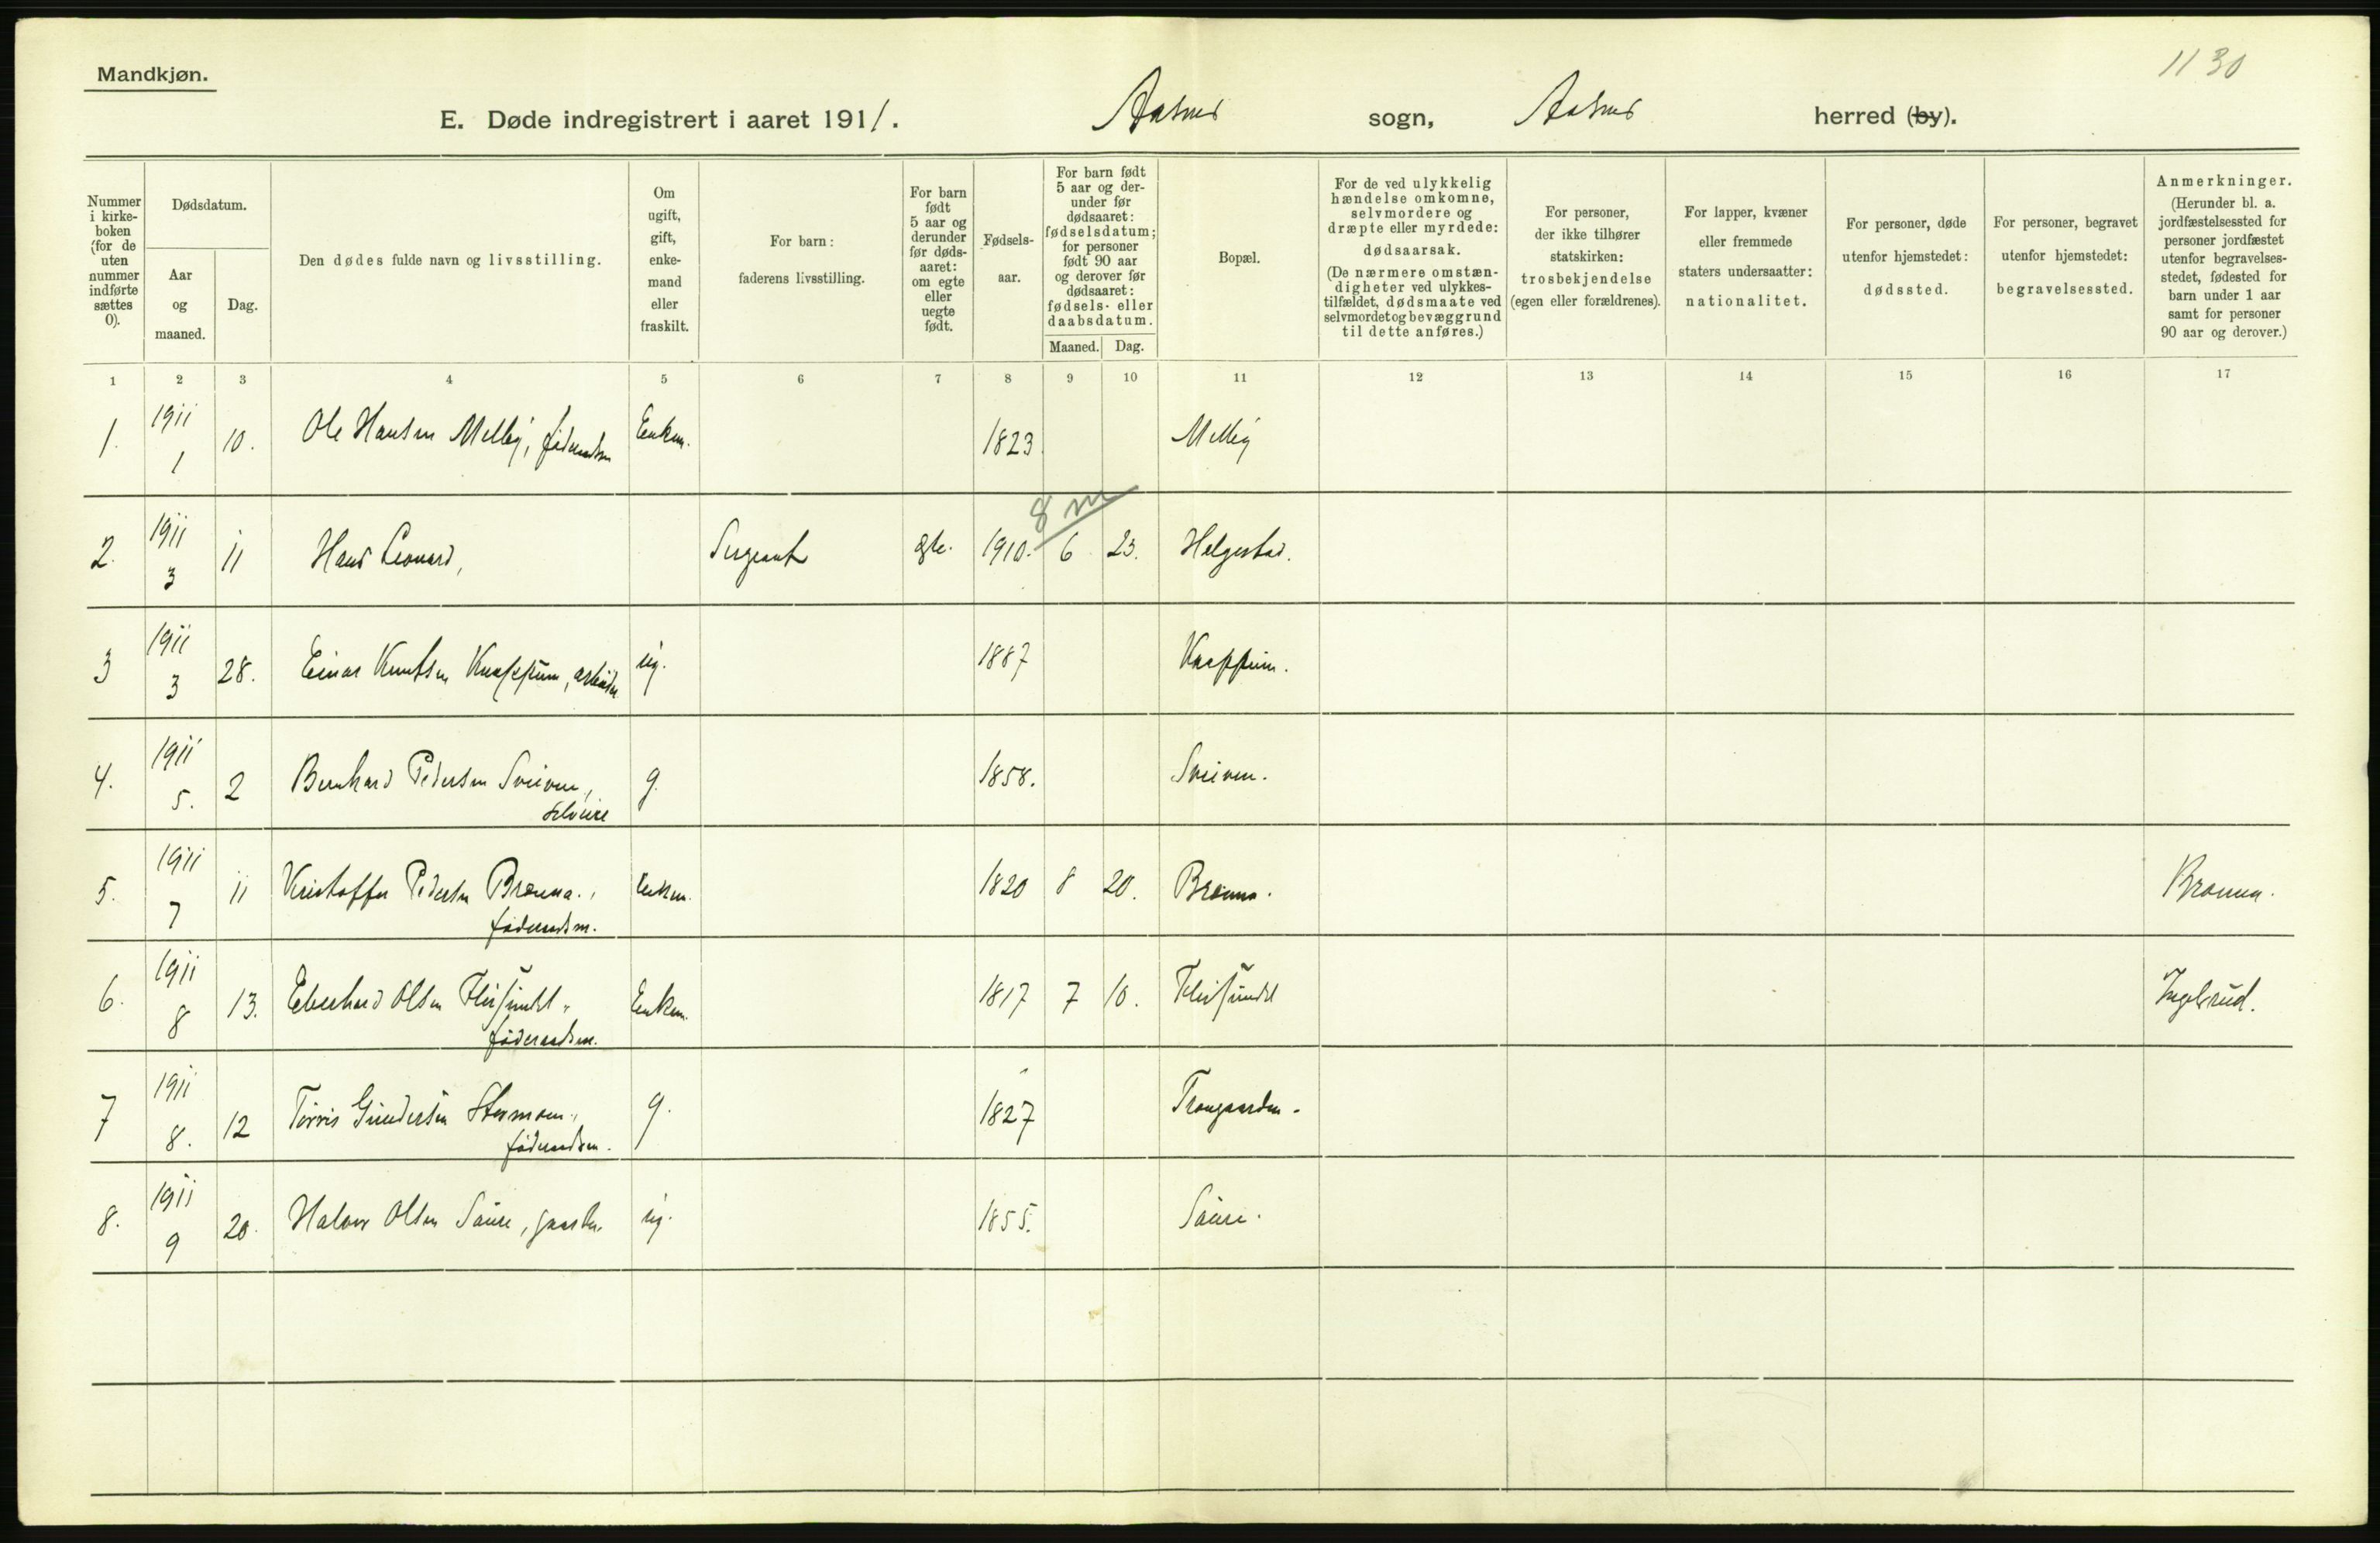 1130
Mandkjøn.
E. Døde indregistrert i aaret 1911. Aasnes sogn, Aasnes herred (by).
Nummer i kirke-boken (for de uten nummer indførte sættes 0).
Dødsdatum.
Aar og maaned.
Dag.
Den dødes fulde navn og livsstilling.
Om ugift, gift, enke-mand eller fraskilt.
For barn: faderens livsstilling.
For barn født 5 aar og derunder før døds-aaret: om egte eller uegte født.
Fødsels-aar.
For barn født 5 aar og der-under før dødsaaret: fødselsdatum; for personer født 90 aar og derover før dødsaaret: fødsels- eller daabsdatum.
Maaned. Dag.
Bopæl.
For de ved ulykkelig hændelse omkomne, selvmordere og dræpte eller myrdede: dødsaarsak. (De nærmere omstæn-digheter ved ulykkes-tilfældet, dødsmaate ved selvmordet og bevæggrund til dette anføres.)
For personer, der ikke tilhører statskirken: trosbekjendelse (egen eller forældrenes).
For lapper, kvæner eller fremmede staters undersaatter: nationalitet.
For personer, døde utenfor hjemstedet: dødssted.
For personer, begravet utenfor hjemstedet: begravelsessted.
Anmerkninger. (Herunder bl. a. jordfæstelsessted for personer jordfæstet utenfor begravelses-stedet, fødested for barn under 1 aar samt for personer 90 aar og derover.)
1 2 3 4 5 6 7 8 9 10 11 12 13 14 15 16 17
1. 1911 1 10. Ole Hansen Melby, føderaadsm Enkem. 1823. Melby
8 m
2. 1911 3 11 Hans Leonard, Sergeant egte. 1910. 6 23. Helgestad.
3 1911 3 28. Einar Knutsen Knappum, arbeider ug. 1887 Knappum.
4. 1911 5. 2 Bernhard Pedersen Sveiven, g. 1858. Sveiven.
selveier
5. 1911 7 11 Kristoffer Pedersen Brenna., Enkem. 1820 8 20. Brenna. Brenna.
føderaadsm.
6. 1911 8 13. Eberhard Olsen Flisundet, Enkem. 1817 7 10. Flisundet Ingelsrud.
føderaadsm.
7 1911 8. 12 Gundersen g. 1827 Trangaarden.
føderaadsm.
8. 1911 9 20. Halvor Olsen Saure, ug. 1855. Saure.